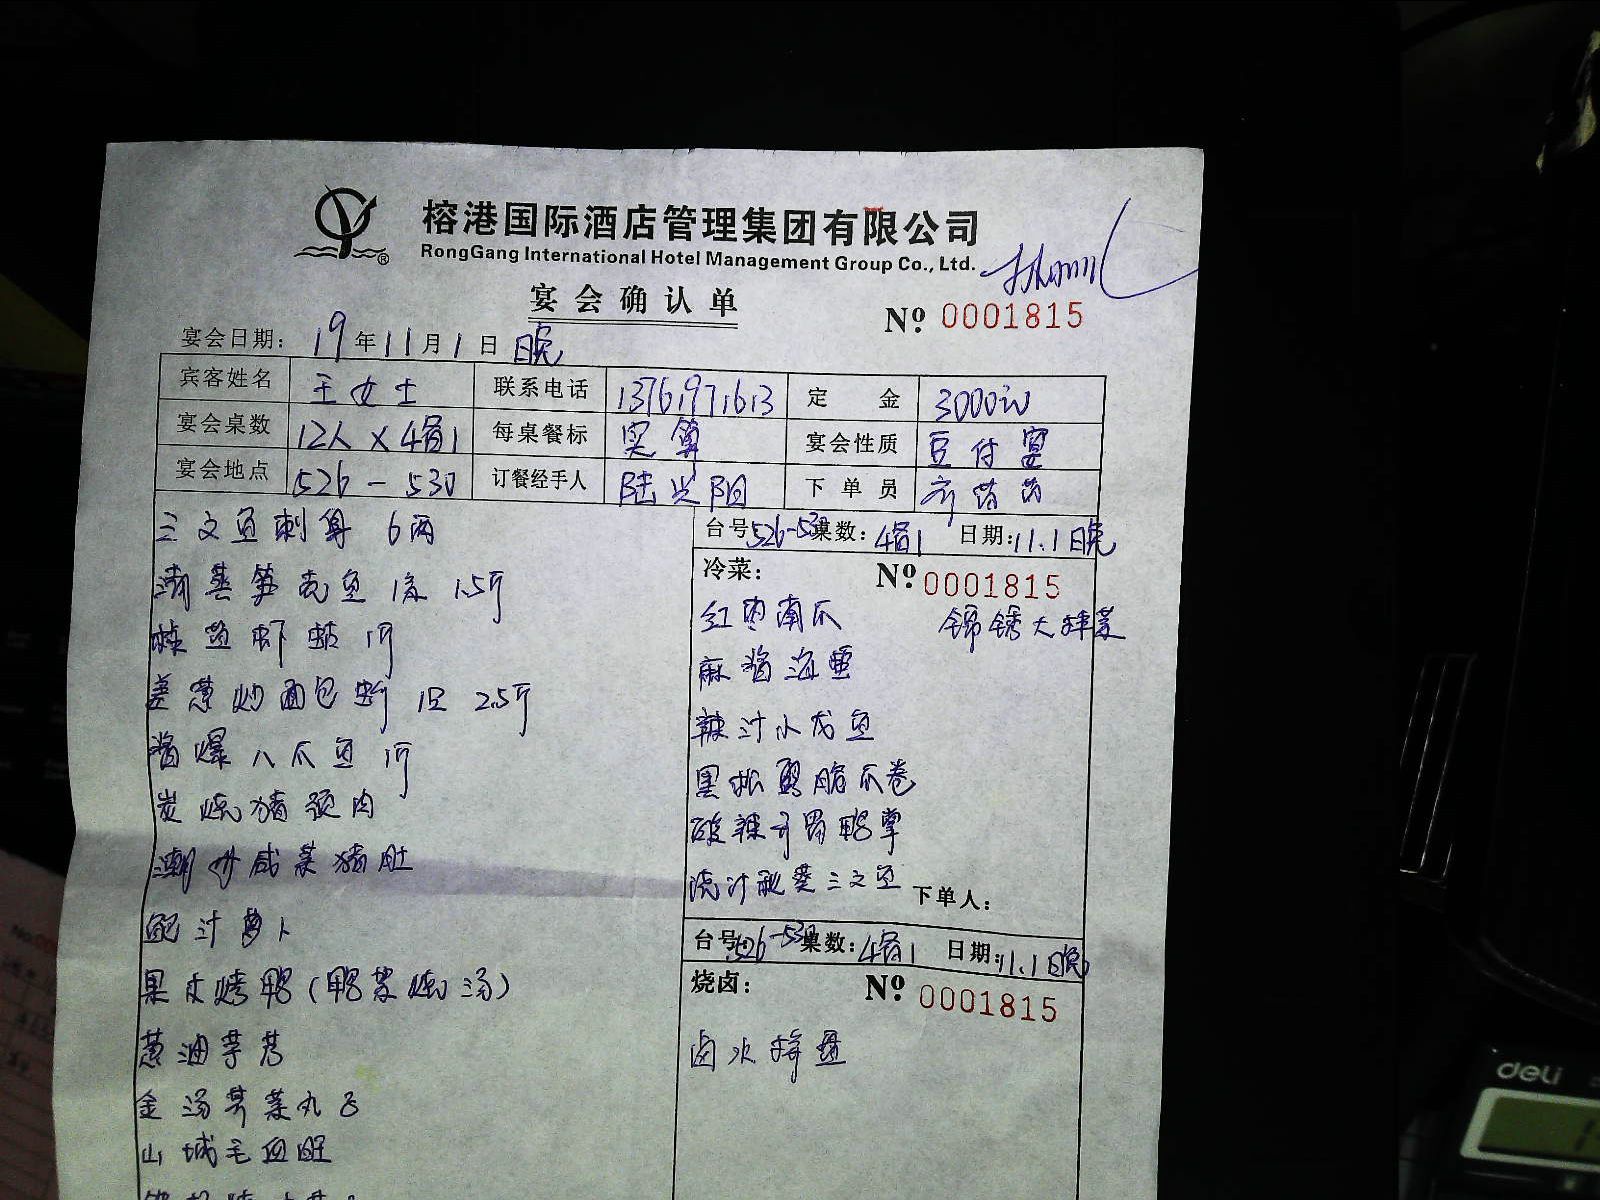 榕港国际酒店管理集团有限公司
RongGang International Hotel Management Group Co., Ltd.
宴会确认单
№ 0001815
宴会日期: 19年11月1日 晚
宾客姓名 王女士 联系电话 13761971613 定金 3000元
宴会桌数 12人×4备1 每桌餐标 实算 宴会性质 豆付宴
宴会地点 526-530 订餐经手人 陆兴阳 下单员
三文鱼刺身 6两
潮蒸笋壳鱼 1条 1.5斤
虾蛄 1斤
姜葱炒面包蟹 1只 2.5斤
酱爆八爪鱼 1斤
炭烧猪颈肉
潮州咸菜猪肚
鲍汁萝卜
果木烤鸭(鸭架炖汤)
葱油芋艿
金汤荠菜丸子
山城毛血旺
台号: 526-530 桌数: 4备1 日期: 11.1晚
冷菜: № 0001815
红枣南瓜 锦绣大拌菜
麻酱海蜇
辣汁小龙鱼
黑松露脆瓜卷
酸辣开胃鸭掌
浇汁秋葵三文鱼
下单人:
台号: 526-530 桌数: 4备1 日期: 11.1晚
烧卤: № 0001815
卤水拼盘
deli